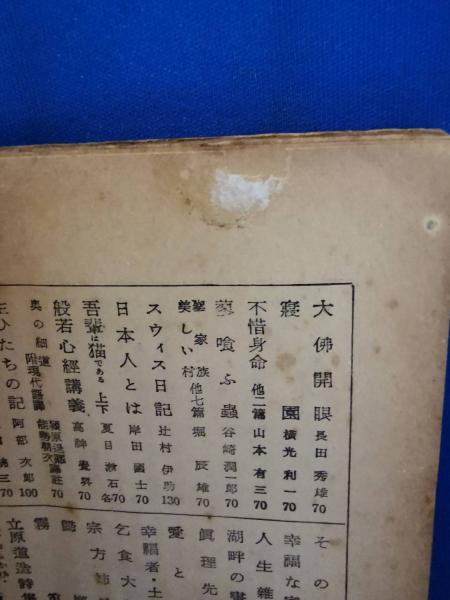 大佛開眼 長田秀雄 70
寢園 横光利一 70
不惜身命 他二篇 山本有三 70
蓼喰ふ蟲 谷崎潤一郎 70
聖家族 美しい村 他七篇 堀辰雄 70
スウィス日記 辻村伊助 130
日本人とは 岸田國士 70
吾輩は猫である 上下 夏目漱石 各70
般若心經講義 高神覺昇 70
奥の細道 附現代語譯 潁原退藏 能勢朝次 譯註 70
生ひたちの記 阿部次郎 100
70
その
幸福な家
人生雜
湖畔の書
眞理先
愛と
幸福者・土
乞食大
宗方姉
霧
立原道造詩集